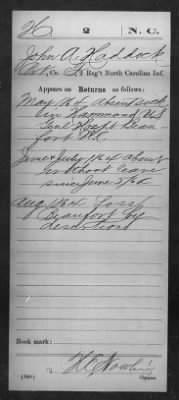 H 2 N.C.
John A. Haddock
Pvt, Co. 2 Reg't North Carolina Inf.
Appears on Returns as follows:
May 1864 Absent sick
in Hammond U.S.
Genl Hospt Beau
fort N.C.
June & July 1864 absent
without leave
since June 5/64
Aug 1864 Loss
Beaufort by
desertion
Book mark:
Copyist.